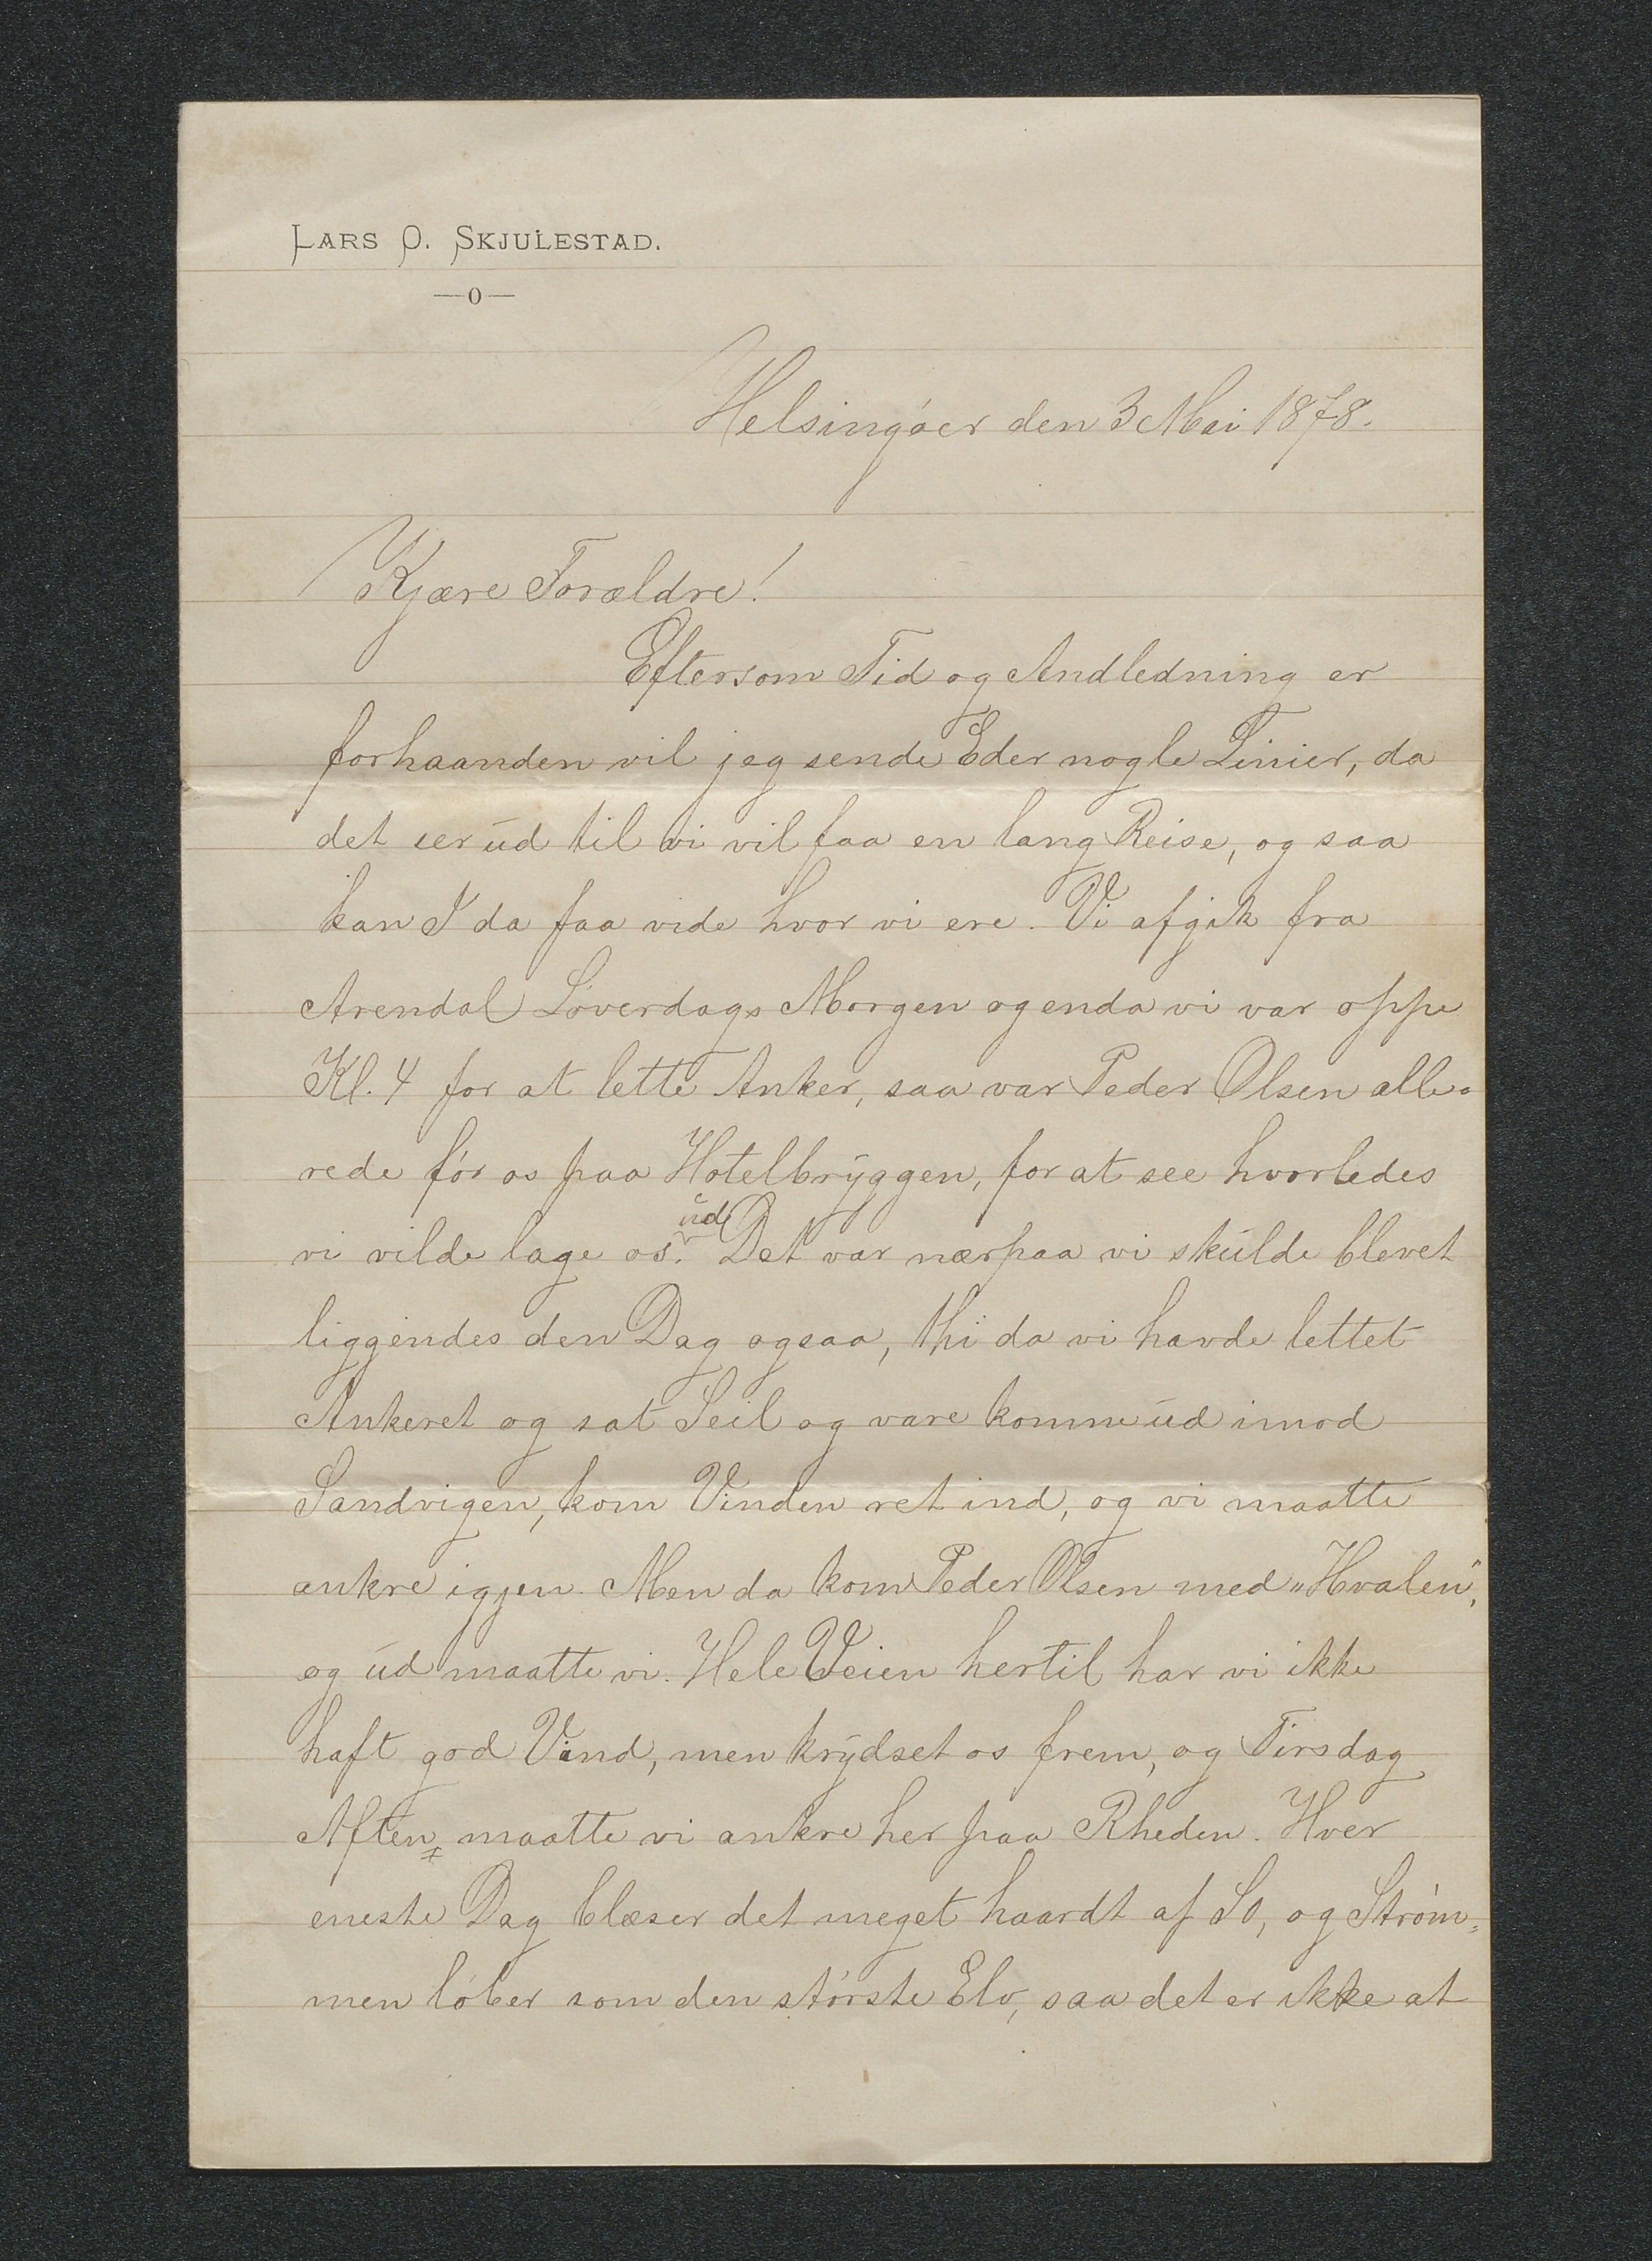 LARS O. SKJULESTAD.
—o—
Helsingöer den 3 Mai 1878.
Kjære Forældre!
Eftersom Tid og Andledning er
forhaanden vil jeg sende Eder nogle Linier, da
det ser ud til vi vil faa en lang Reise, og saa
kan I da faa vide hvor vi ere. Vi afgik fra
Arendal Löverdags Morgen og enda vi var oppe
Kl. 4 for at lette Anker, saa var Peder Olsen alle=
rede för os paa Hotelbryggen, for at see hvorledes
vi vilde lage os ud. Det var nærpaa vi skulde blevet
liggendes den Dag ogsaa, thi da vi havde lettet
Ankeret og sat Seil og vare komne ud imod
Sandvigen, kom Vinden ret ind, og vi maatte
ankre igjen. Men da kom Peder Olsen med "Hvalen",
og ud maatte vi. Hele Veien hertil har vi ikke
haft god Vind, men krydset os frem, og Tirsdag
Aften x maatte vi ankre her paa Rheden. Hver
eneste Dag blæser det meget haardt af SO, og Ström=
men löber som den störste Elv, saa det er ikke at